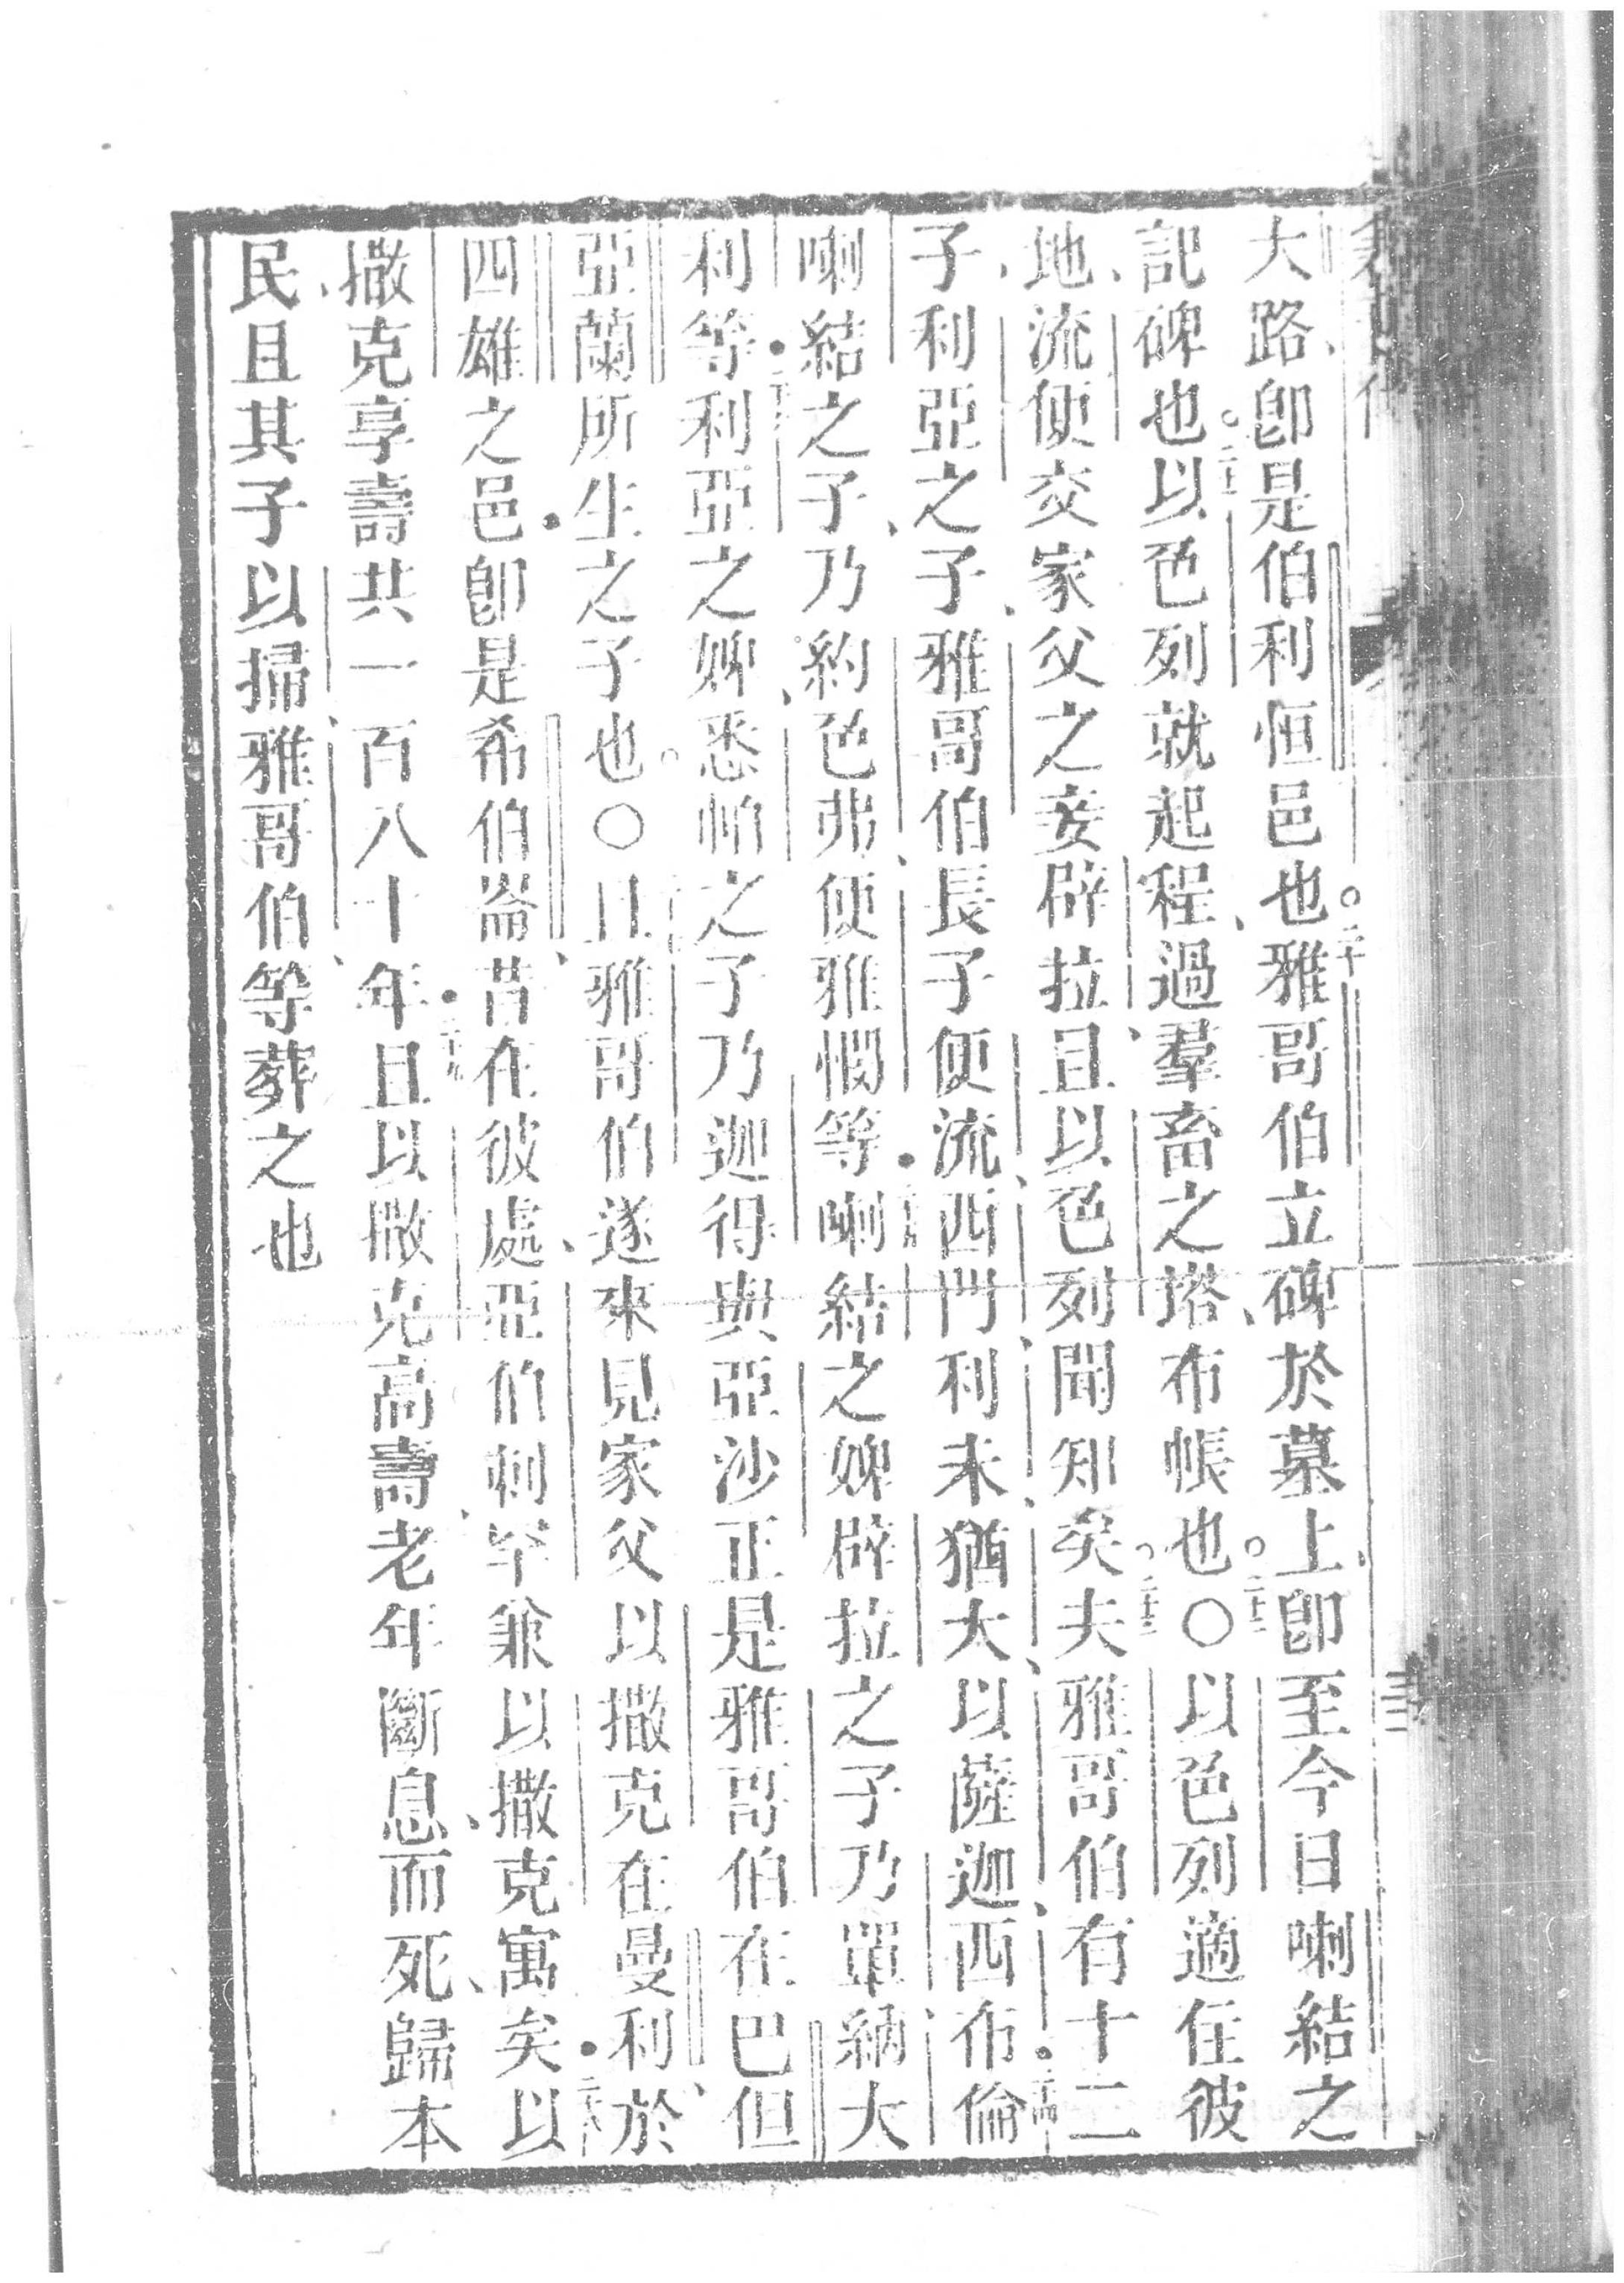 大路、卽是伯利恒邑也。二十雅哥伯立碑於墓上、卽至今日喇結之
記碑也。二十一以色列就起程、過羣畜之塔、布帳也。二十二○以色列適在彼
地、流便交家父之妾辟拉、且以色列聞知矣。二十三夫雅哥伯有十二
子、利亞之子、雅哥伯長子便流、西門、利未、猶大、以薩迦、西布倫•二十四
喇結之子、乃約色弗、便雅憫等•二十五喇結之婢辟拉之子、乃單、納大
利等•二十六利亞之婢悉帕之子、乃迦得與亞沙、正是雅哥伯在巴但
亞蘭所生之子也。○二十七且雅哥伯遂來見家父以撒克在曼利、於
四雄之邑•卽是希伯崙、昔在彼處、亞伯剌罕兼以撒克寓矣•二十八以
撒克享壽共一百八十年•二十九且以撒克高壽老年、斷息而死、歸本
民、且其子以掃、雅哥伯等、葬之也